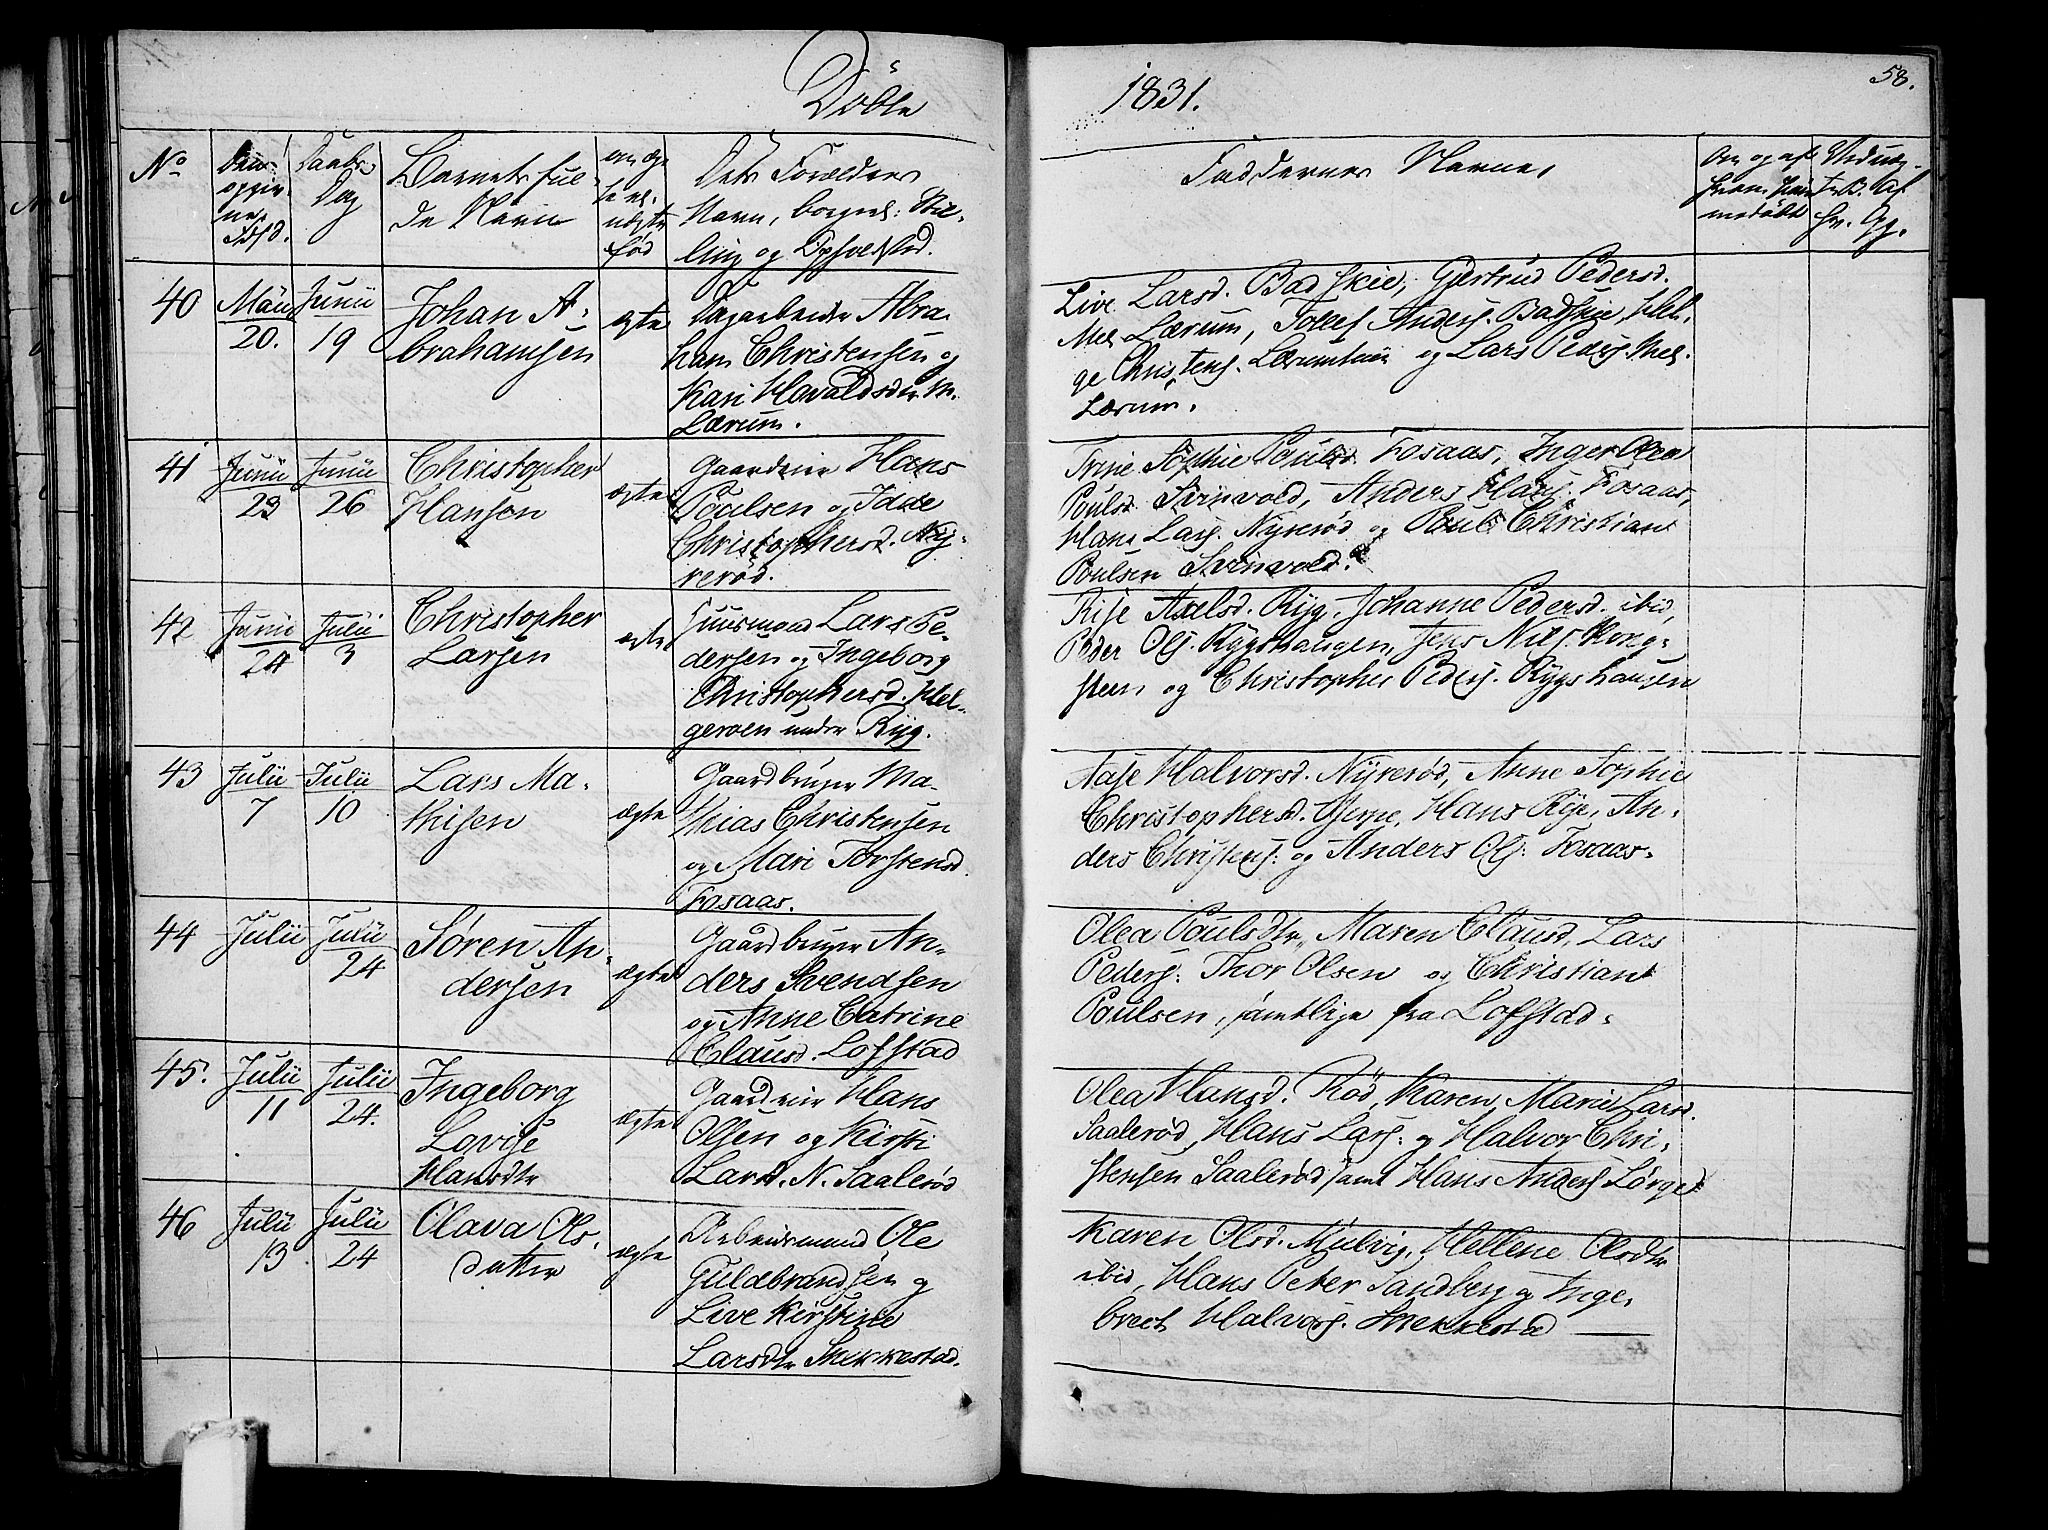 Döbte
1831.
58.
No
Dag
Barnets ful-
de Navn
om æg-
te el.
uægte
fød
Dets Forældres
Navn, borgerl: Stil-
ling og Opholdsted.
Faddernes Navne,
40
20.
Junii
19
Johan A-
brahamsen
ægte
Dagarbeider Abra-
ham Christensen og
Kari Hovaldsdr M.
Lærum.
Live Larsd. Badskie, Gjertrud Pedersd.
Mel. Lærum, Tollef Anders. Badskie, Hel-
ge Christens. og Lars Peders. Mel.
Lærum.
41
Junii
23
Junii
26
Christopher
Hansen
ægte
Gaardeier Hans
Poulsen og Idde
Christophersd. Ny-
rerød.
Trine Sophie Poulsd Fosaas, Inger Olea
Poulsd Svinvold, Anders Hans. Fosaas,
Hans Lars. Nyrerød og Poul Christian
Poulsen Svinvold.
42
Junii
24
Julii
3
Christopher
Larsen
ægte
Huusmand Lars Pe-
dersen og Ingeborg
Christophersd. Hel-
geroen under Ryg.
Axelsd. Ryg, Johanne Pedersd. ibid,
Peder Ols. Rygshaugen, Jens Nils.
og Christopher Peders. Rygshaugen
43
Julii
7
Julii
10
Lars Ma-
thisen
ægte
Gaardbruger Ma-
thias Christensen
og Mari Torstensd.
Fosaas.
Aase Halvorsd. Nyrerød, Anne Sophie
Christophersd. Gjerpe, Hans Rise, An-
ders Christens: og Anders Ols: Fosaas.
44
Julii
Julii
24
Søren An-
dersen
ægte
Gaardbruger An-
ders Svendsen
og Anne Catrine
Clausd. Lofstad
Olea Poulsdtr, Maren Clausd, Lars
Peders: Thor Olsen og Christian
Poulsen, samtlige fra Lofstad.
45.
Julii
11
Julii
24.
Ingeborg
Lovise
Hansdtr
ægte
Gaardeier Hans
Olsen og Kirsti
Larsd. N. Saalerød
Olea Hansd. Rød, Karen Marie Larsd.
Saalerød, Hans Lars: og Halvor Chri-
stensen Saalerød samt Hans Anders Lørge
46
Julii
13
Julii
24
Olava Ols-
datter
ægte
Arbeidsmand Ole
Guldbrandsen og
Live Kirstine
Larsdtr Strekkestad.
Karen Olsd. Mulvig, Hellene Olsdtr
ibid, Hans Peter Sandberg og Inge-
brect Halvors. Strekkestad